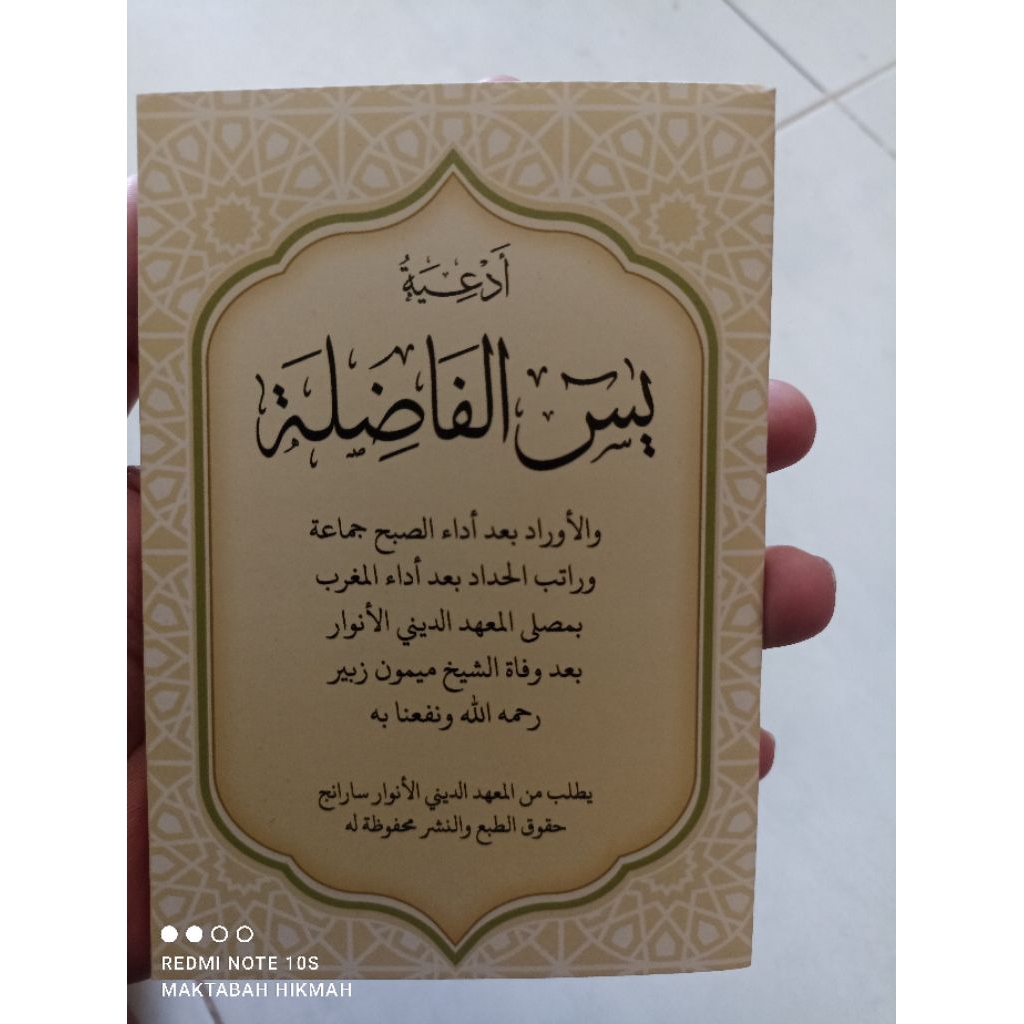 أَدْعِيَةُ
يٰسٓ الفَاضِلَةِ
والأوراد بعد أداء الصبح جماعة
وراتب الحداد بعد أداء المغرب
بمصلى المعهد الديني الأنوار
بعد وفاة الشيخ ميمون زبير
رحمه الله ونفعنا به
يطلب من المعهد الديني الأنوار سارانج
حقوق الطبع والنشر محفوظة له
REDMI NOTE 10S
MAKTABAH HIKMAH